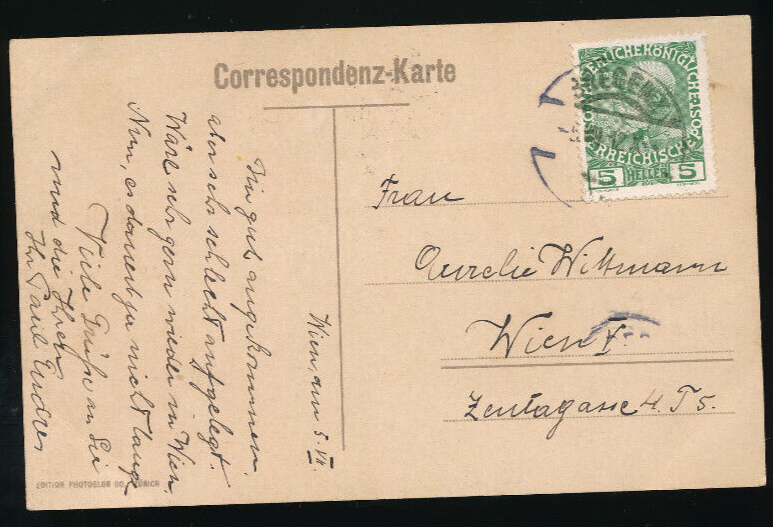 Correspondenz-Karte
Wien, am 5. VII
Bin gut angekommen.
aber sehr schlecht aufgelegt.
Wäre sehr gern wieder in Wien.
Nun, es dauert ja nicht lange
Viele Grüße an Sie
und die Ihren
Ihr Paul
Frau
Aurelie Wittmann
Wien V.
Zentagasse 4. T 5.
5 HELLER 5
BREGENZ
EDITION PHOTOGLOB CO., ZÜRICH